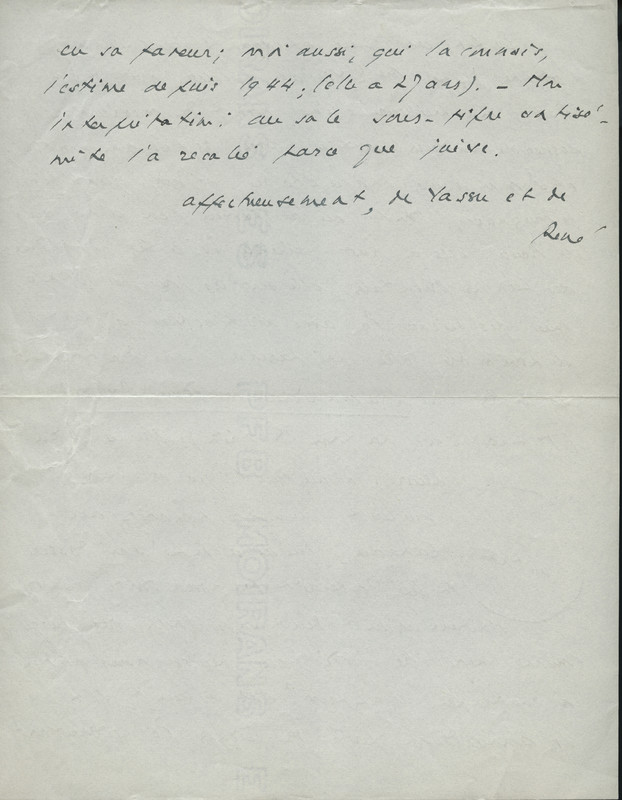 en sa faveur; moi aussi, qui la connais,
l'estime depuis 1944; (elle a 27 ans). – Mon
interprétation: un sale sous-fifre antisé-
mite l'a recalée parce que juive.
affectueusement, de Yassu et de
René